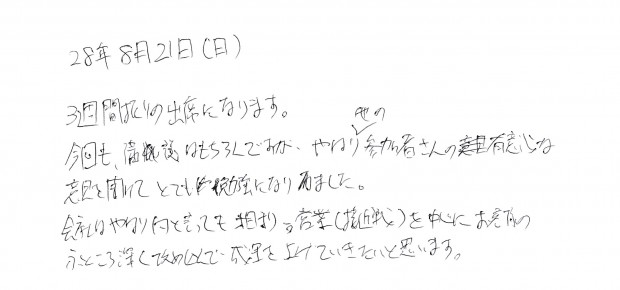 28年8月21日(日)
3週間振りの出席になります。
今回も、講義はもちろんですが、やはり他の参加者さんの有意心な
意見を聞けてとても勉強になりました。
会社はやはり何と言っても粗利 営業(接近戦)を中心にお客様の
ふところ深く攻め込んで 成運を上げていきたいと思います。